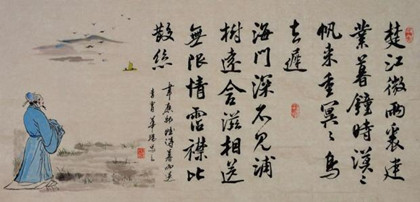 楚江微雨裏建
業暮鐘時漠々
帆來重冥々鳥
去遲
海門深不見浦
樹遠含滋相送
無限情霑襟比
散絲
韋應物賦得暮雨送
李胄